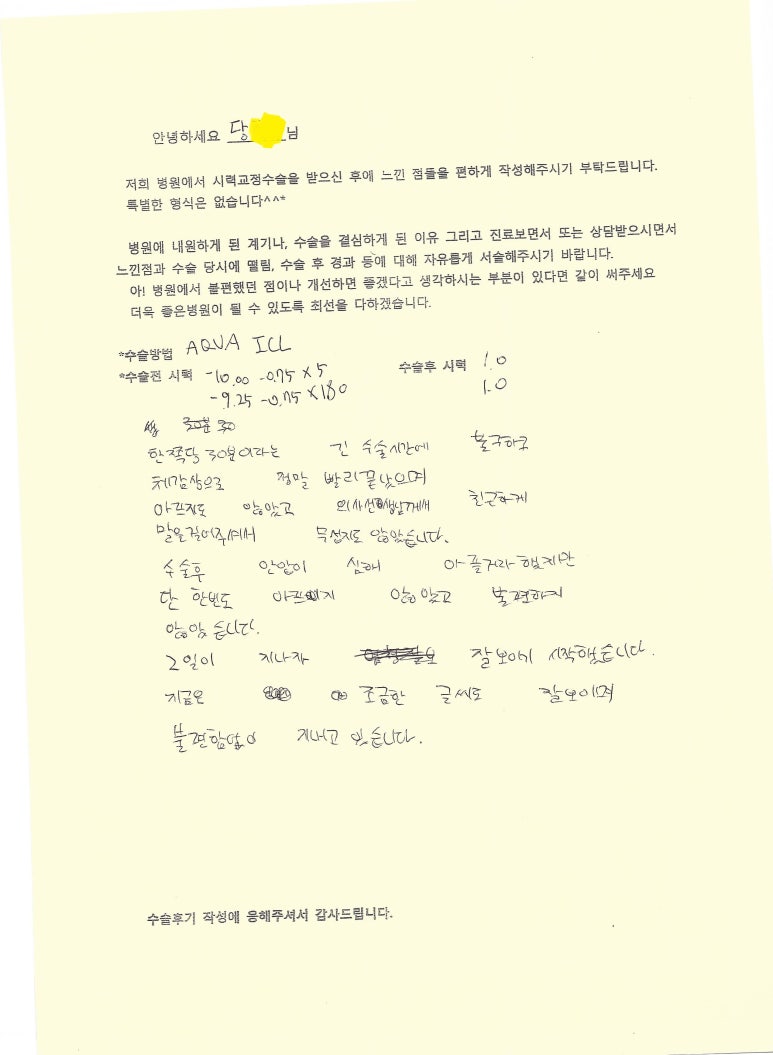 안녕하세요 당 님
저희 병원에서 시력교정수술을 받으신 후에 느낀 점들을 편하게 작성해주시기 부탁드립니다.
특별한 형식은 없습니다^^*
병원에 내원하게 된 계기나, 수술을 결심하게 된 이유 그리고 진료보면서 또는 상담받으시면서
느낀점과 수술 당시에 떨림, 수술 후 경과 등에 대해 자유롭게 서술해주시기 바랍니다.
아! 병원에서 불편했던 점이나 개선하면 좋겠다고 생각하시는 부분이 있다면 같이 써주세요
더욱 좋은병원이 될 수 있도록 최선을 다하겠습니다.
*수술방법 AQUA ICL
*수술전 시력 -10.00 -0.75 X 5 수술후 시력 1.0
-9.25 -0.75 X 180 1.0
한쪽당 30분이라는 긴 수술시간에 불구하고
체감상으로 정말 빨리끝났으며
아프지도 않았고 의사선생님께서 친근하게
말을걸어주셔서 무섭지도 않았습니다.
수술후 안압이 심해 아플거라 했지만
단 한번도 아프지 않았고 불편하지
않았습니다.
2일이 지나자 잘보이기 시작했습니다.
지금은 조금한 글씨도 잘보이며
불편함없이 지내고 있습니다.
수술후기 작성에 응해주셔서 감사드립니다.